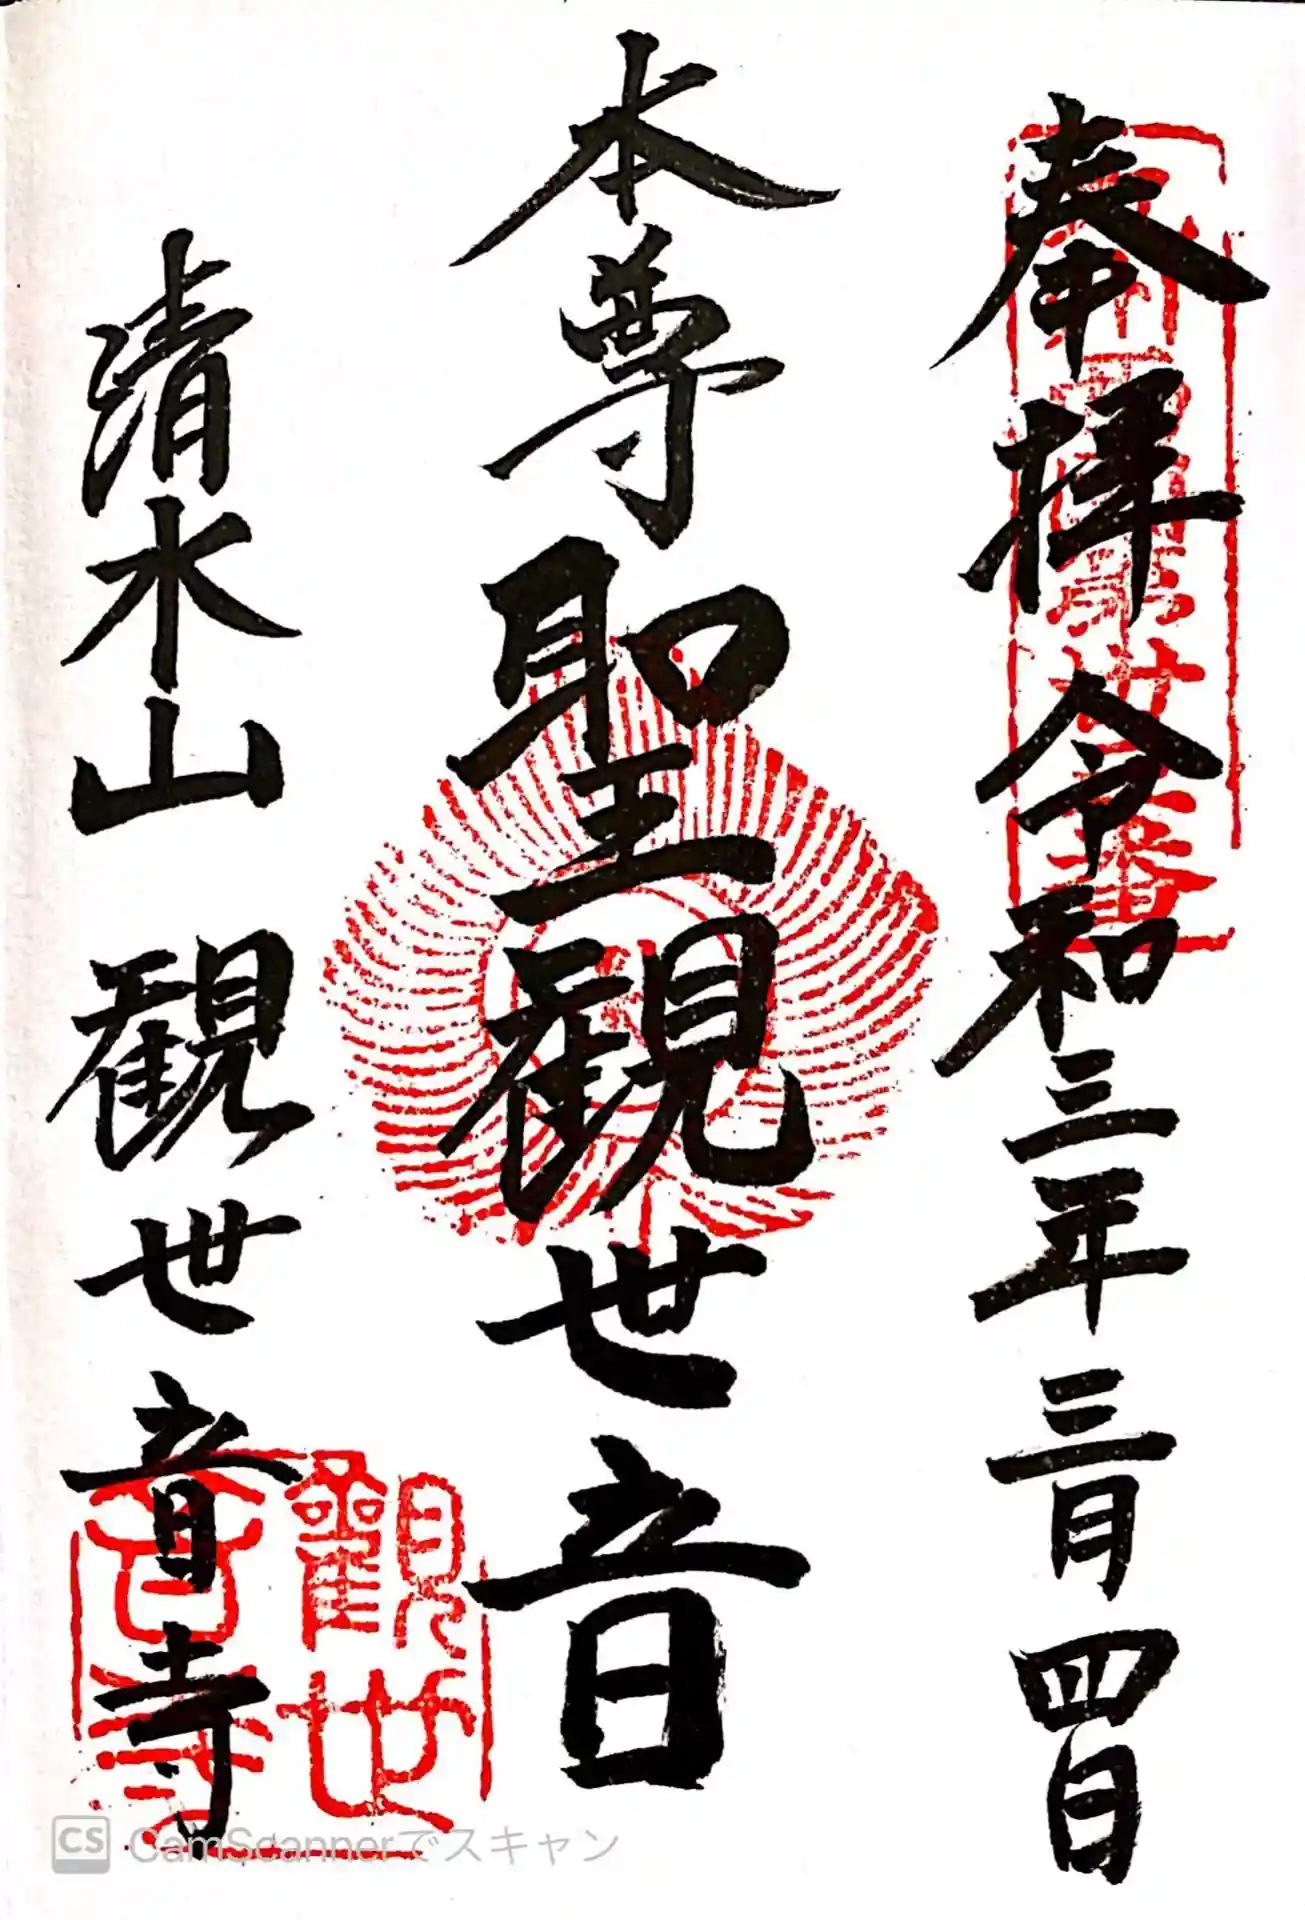 奉拝 令和三年三月四日
本尊 聖観世音
清水山 観世音寺
觀世音寺
CS CamScannerでスキャン